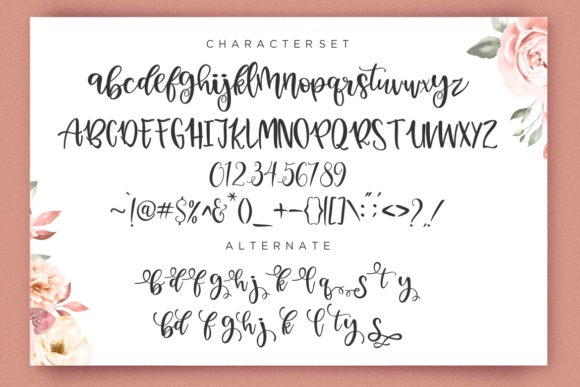 CHARACTERSET
abcdefghijklmnopqrstuvwxyz
ABCDEFGHIJKLMNOPQRSTUVWXYZ
0123456789
~`!@#$%^&*()_+-{}|[]\:";'<>?,/
ALTERNATE
b d f g h j k l q s t y
b d f g h j k l t y s